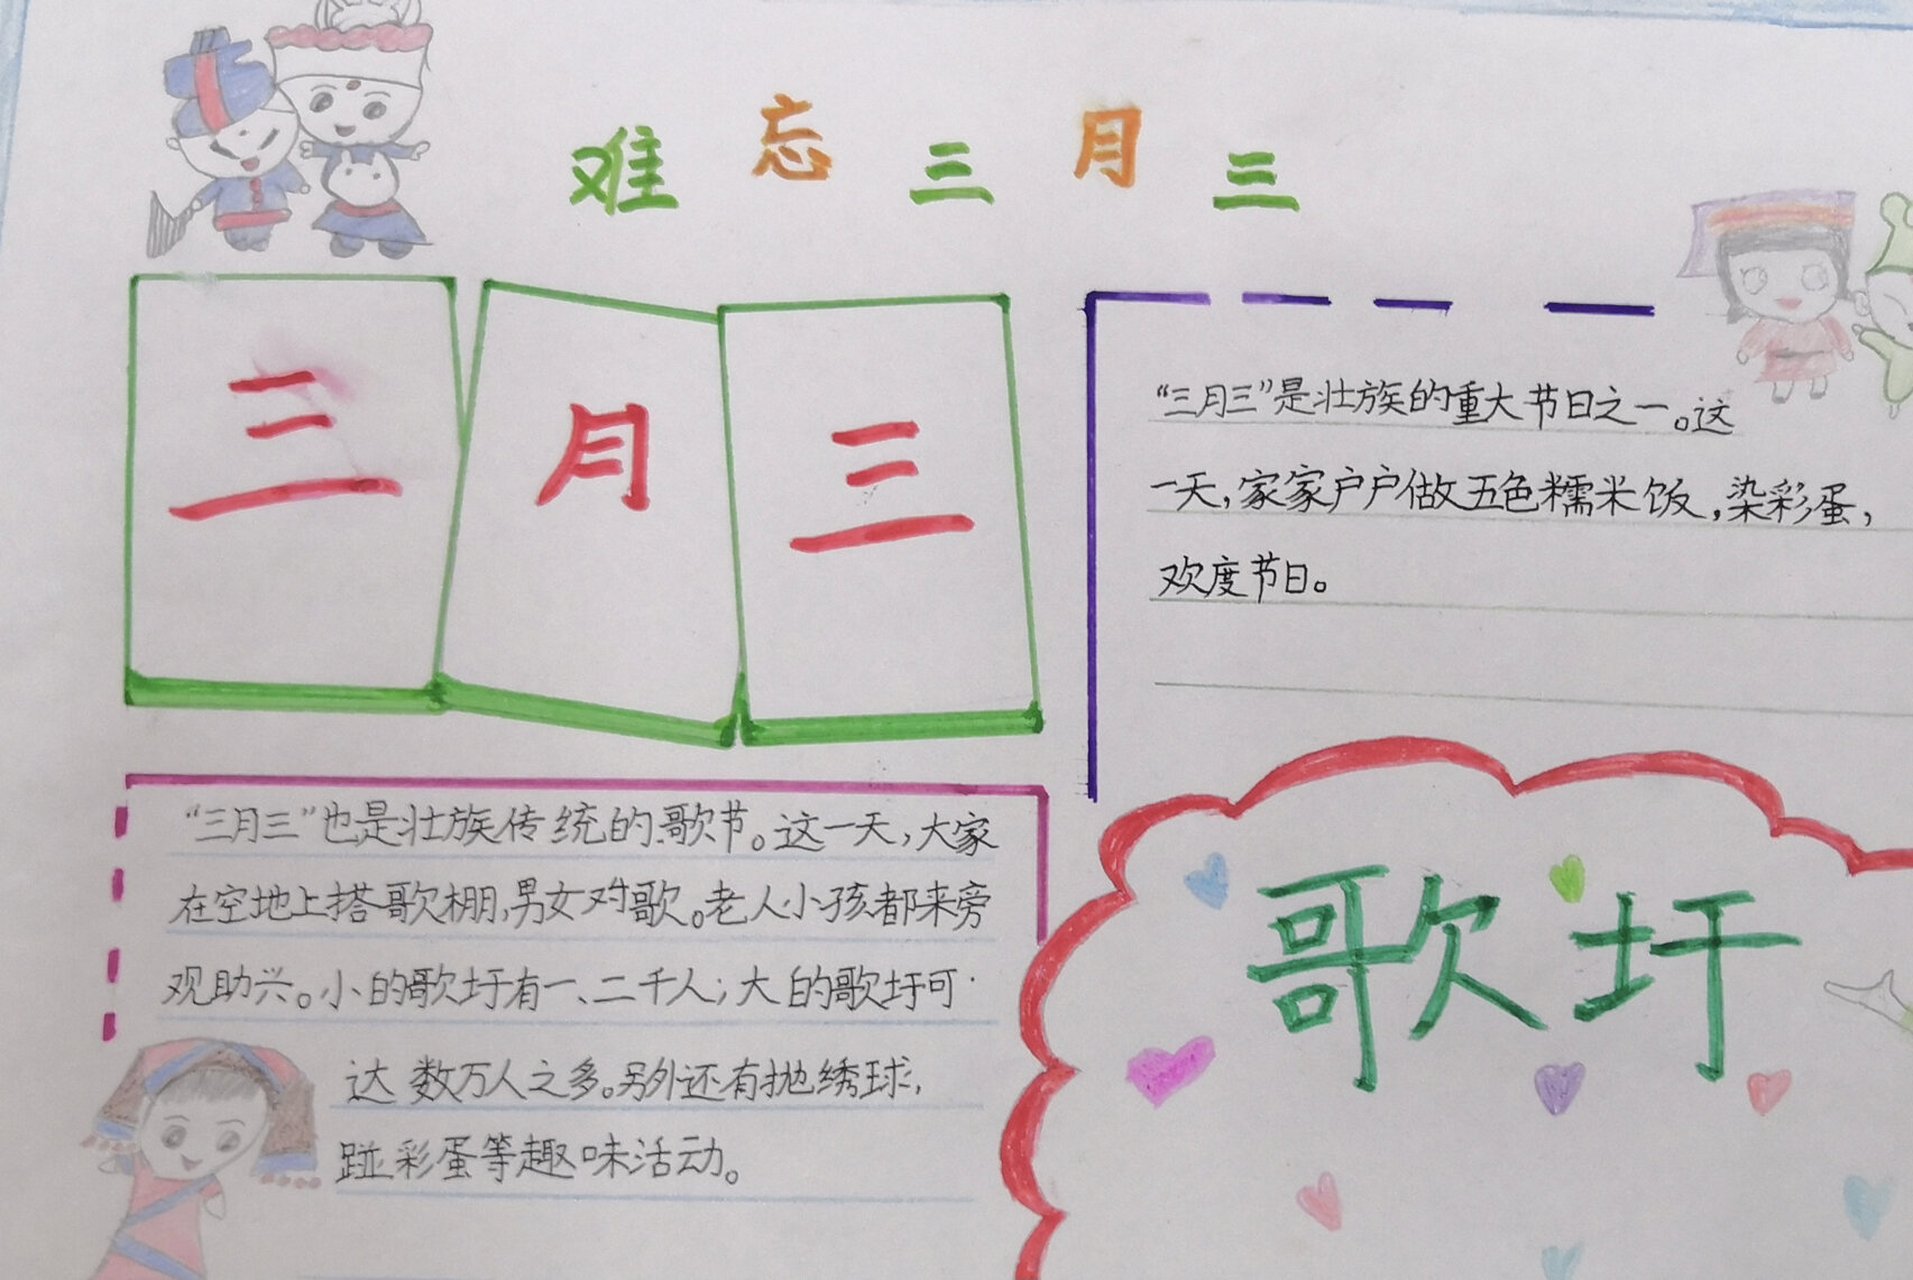 难忘三月三
三
月
三
“三月三”是壮族的重大节日之一。这
一天，家家户户做五色糯米饭，染彩蛋，
欢度节日。
“三月三”也是壮族传统的歌节。这一天，大家
在空地上搭歌棚，男女对歌。老人小孩都来旁
观助兴。小的歌圩有一、二千人；大的歌圩可
达数万人之多。另外还有抛绣球，
碰彩蛋等趣味活动。
歌圩